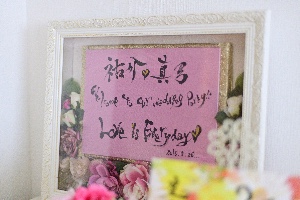 祐介♥真弓
"Welcome to Our wedding Party"
Love is Everyday♥